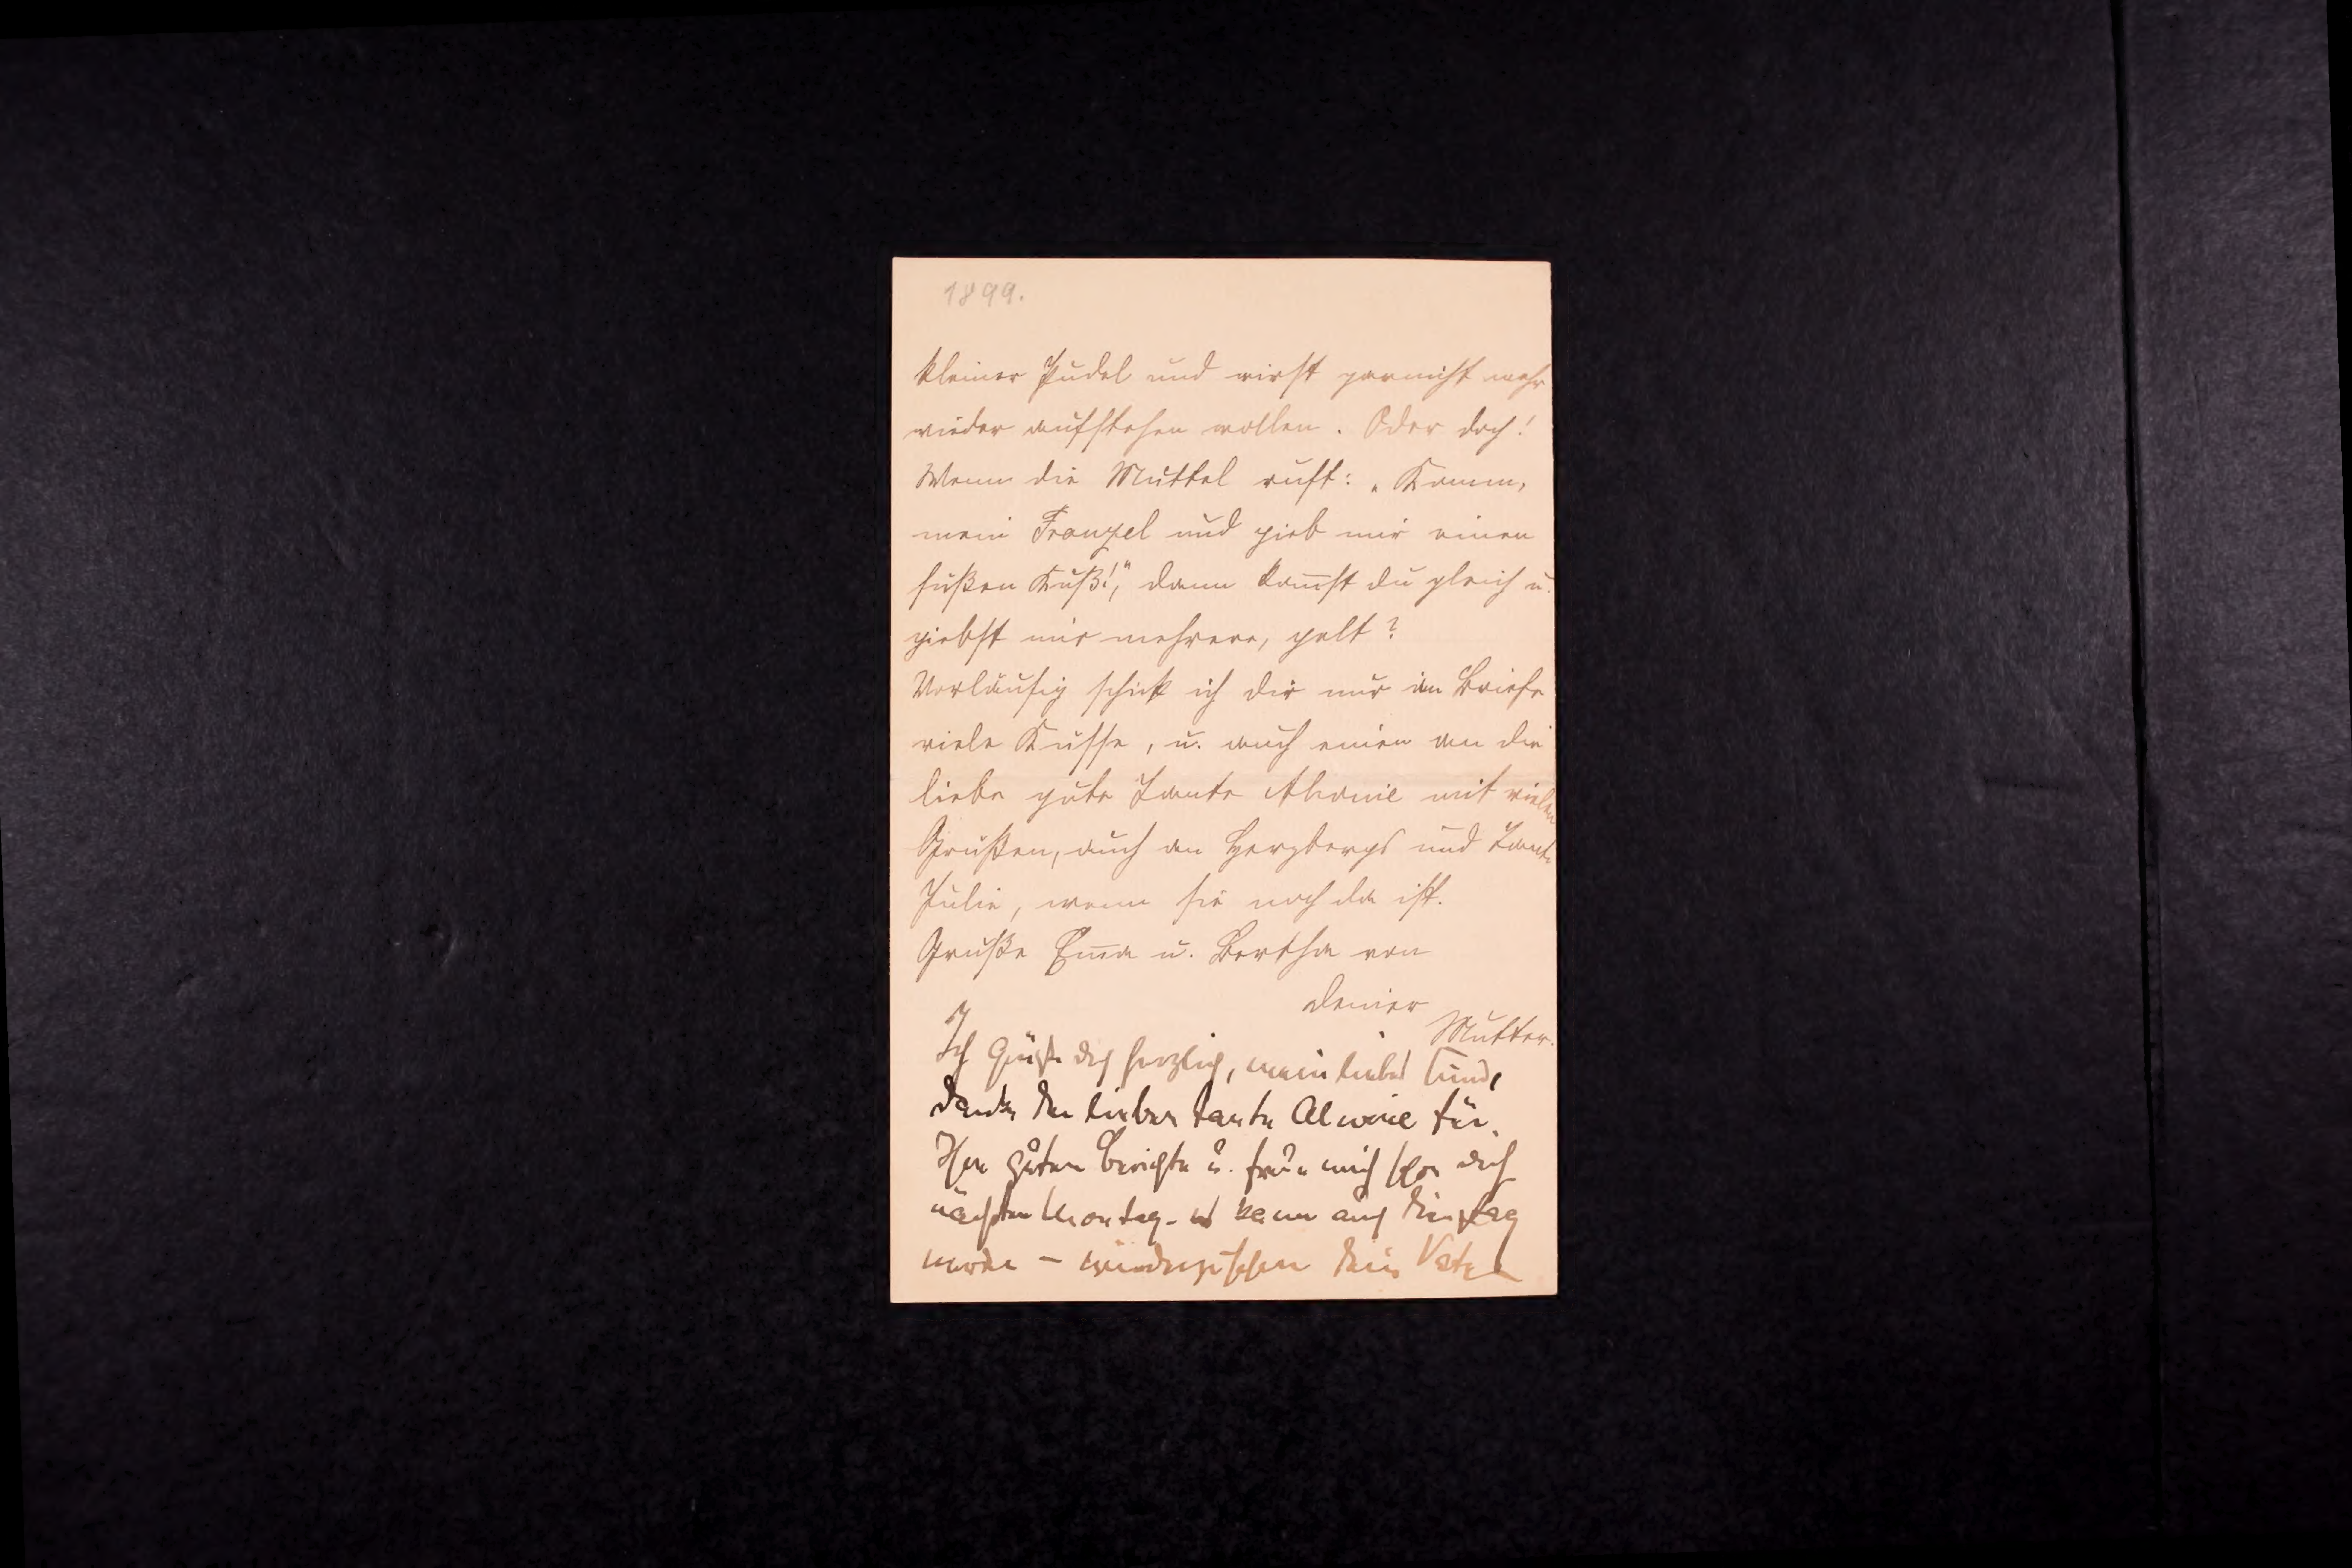 1899.
kleiner Pudel und wirst garnicht mehr
wieder aufstehen wollen. Oder doch!
Wenn die Muttel ruft: „Komm,
mein Franzel und gieb mir einen
süßen Kuß!", dann kom̅st du gleich u.
giebst mir mehrere, gelt?
Vorläufig schick ich dir nur im Briefe
viele Küsse, u. auch einen an die
liebe gute Tante Alwine mit vielen
Grüßen, auch an Herzbergs und Tante
Julie, wenn sie noch da ist.
Grüße Em̅a u. Bertha von
deiner
Mutter.
Ich grüße dich herzlich, mein liebes Kind,
danke der lieben Tante Alwine für
Ihre guten Berichte u. freue mich dich
nächsten Montag - es kann auch Dienstag
werden - wiederzusehen Dein Vater